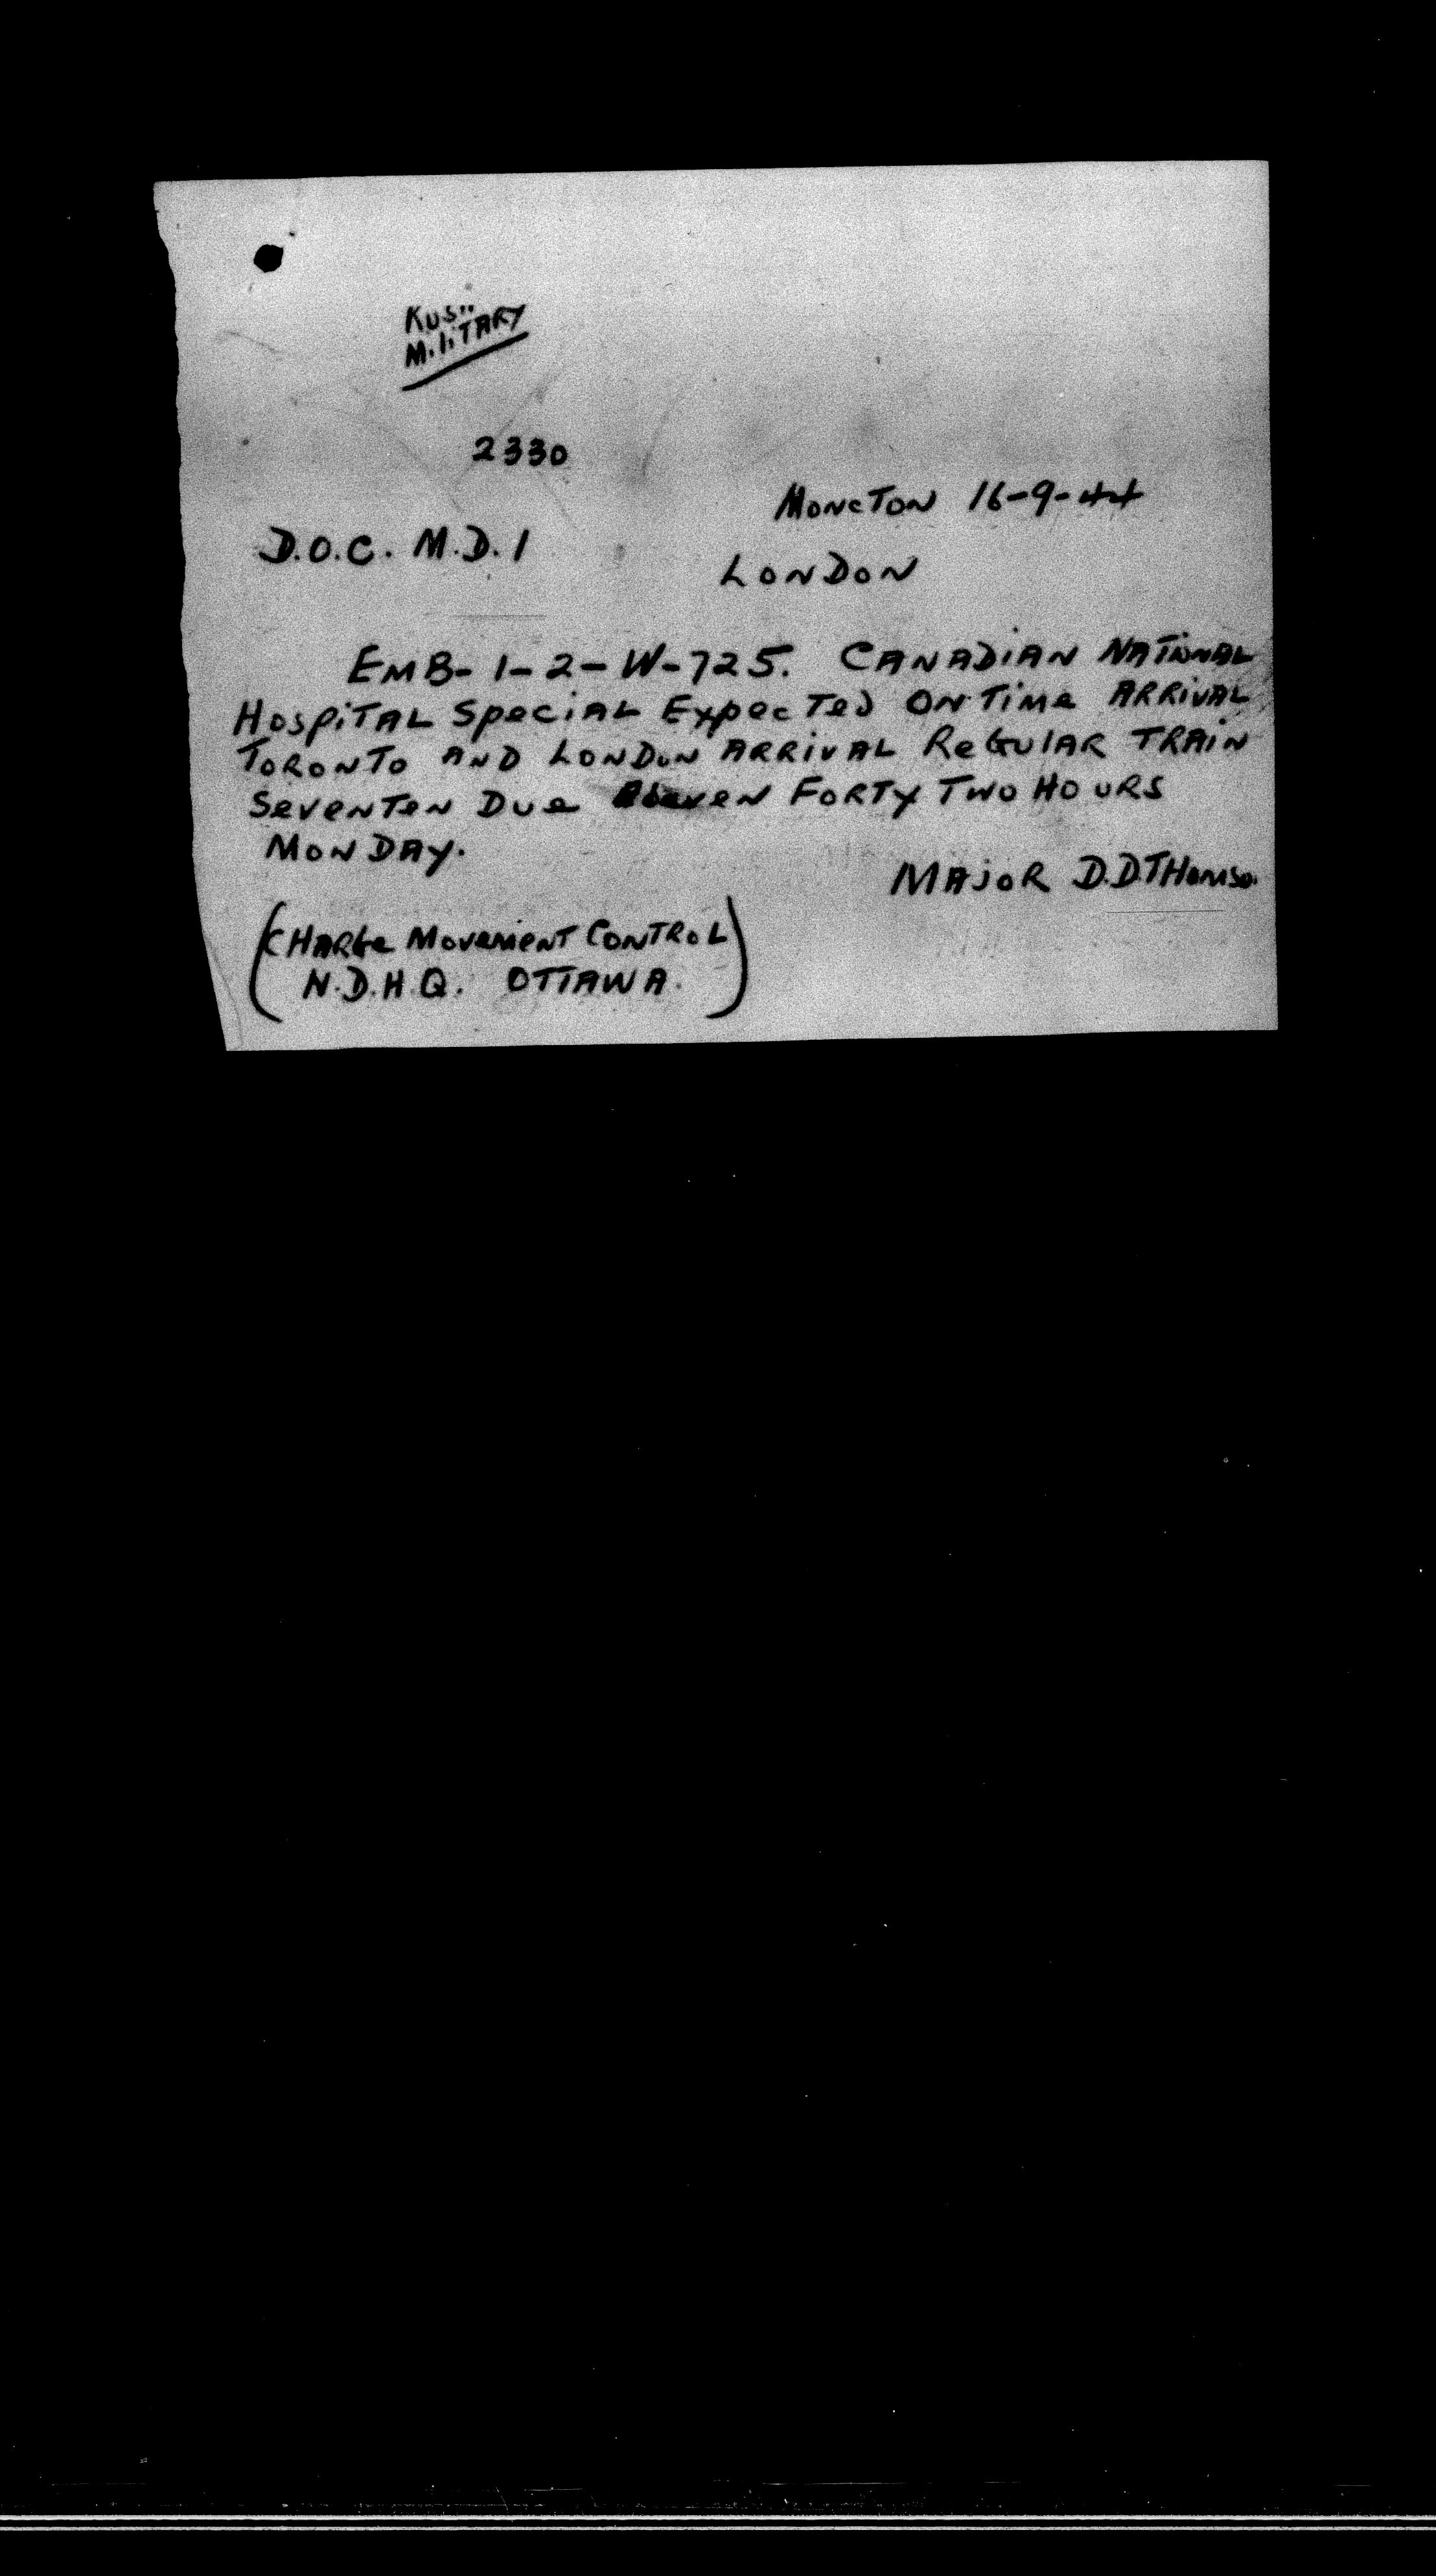 Kus"
MiLiTARY
2330
MONCTON 16-9-44
D.O.C. M.D. 1
LONDON
EMB- 1-2-W-725. CANADiAN NATiONAL
HOSPiTAL SPeCiAL EXPeCTeD ON TiMe ARRiVAL
TORONTO AND LONDON ARRiVAL ReGULAR TRAiN
SeVeNTeN DUe FORTY TWO HOURS
MONDAY.
MAjOR D.D.THOMSO.
(CHARGe MOVeMeNT CONTROL
N.D.H.Q. OTTAWA.)